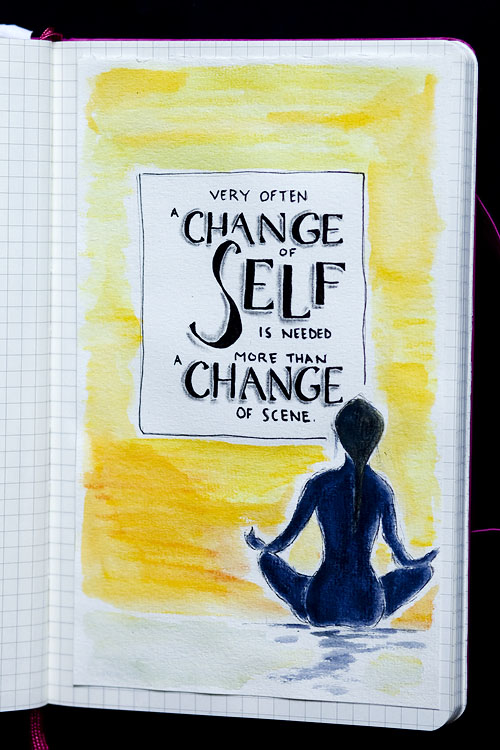 VERY OFTEN
A CHANGE
OF
SELF
IS NEEDED
MORE THAN
A CHANGE
OF SCENE.